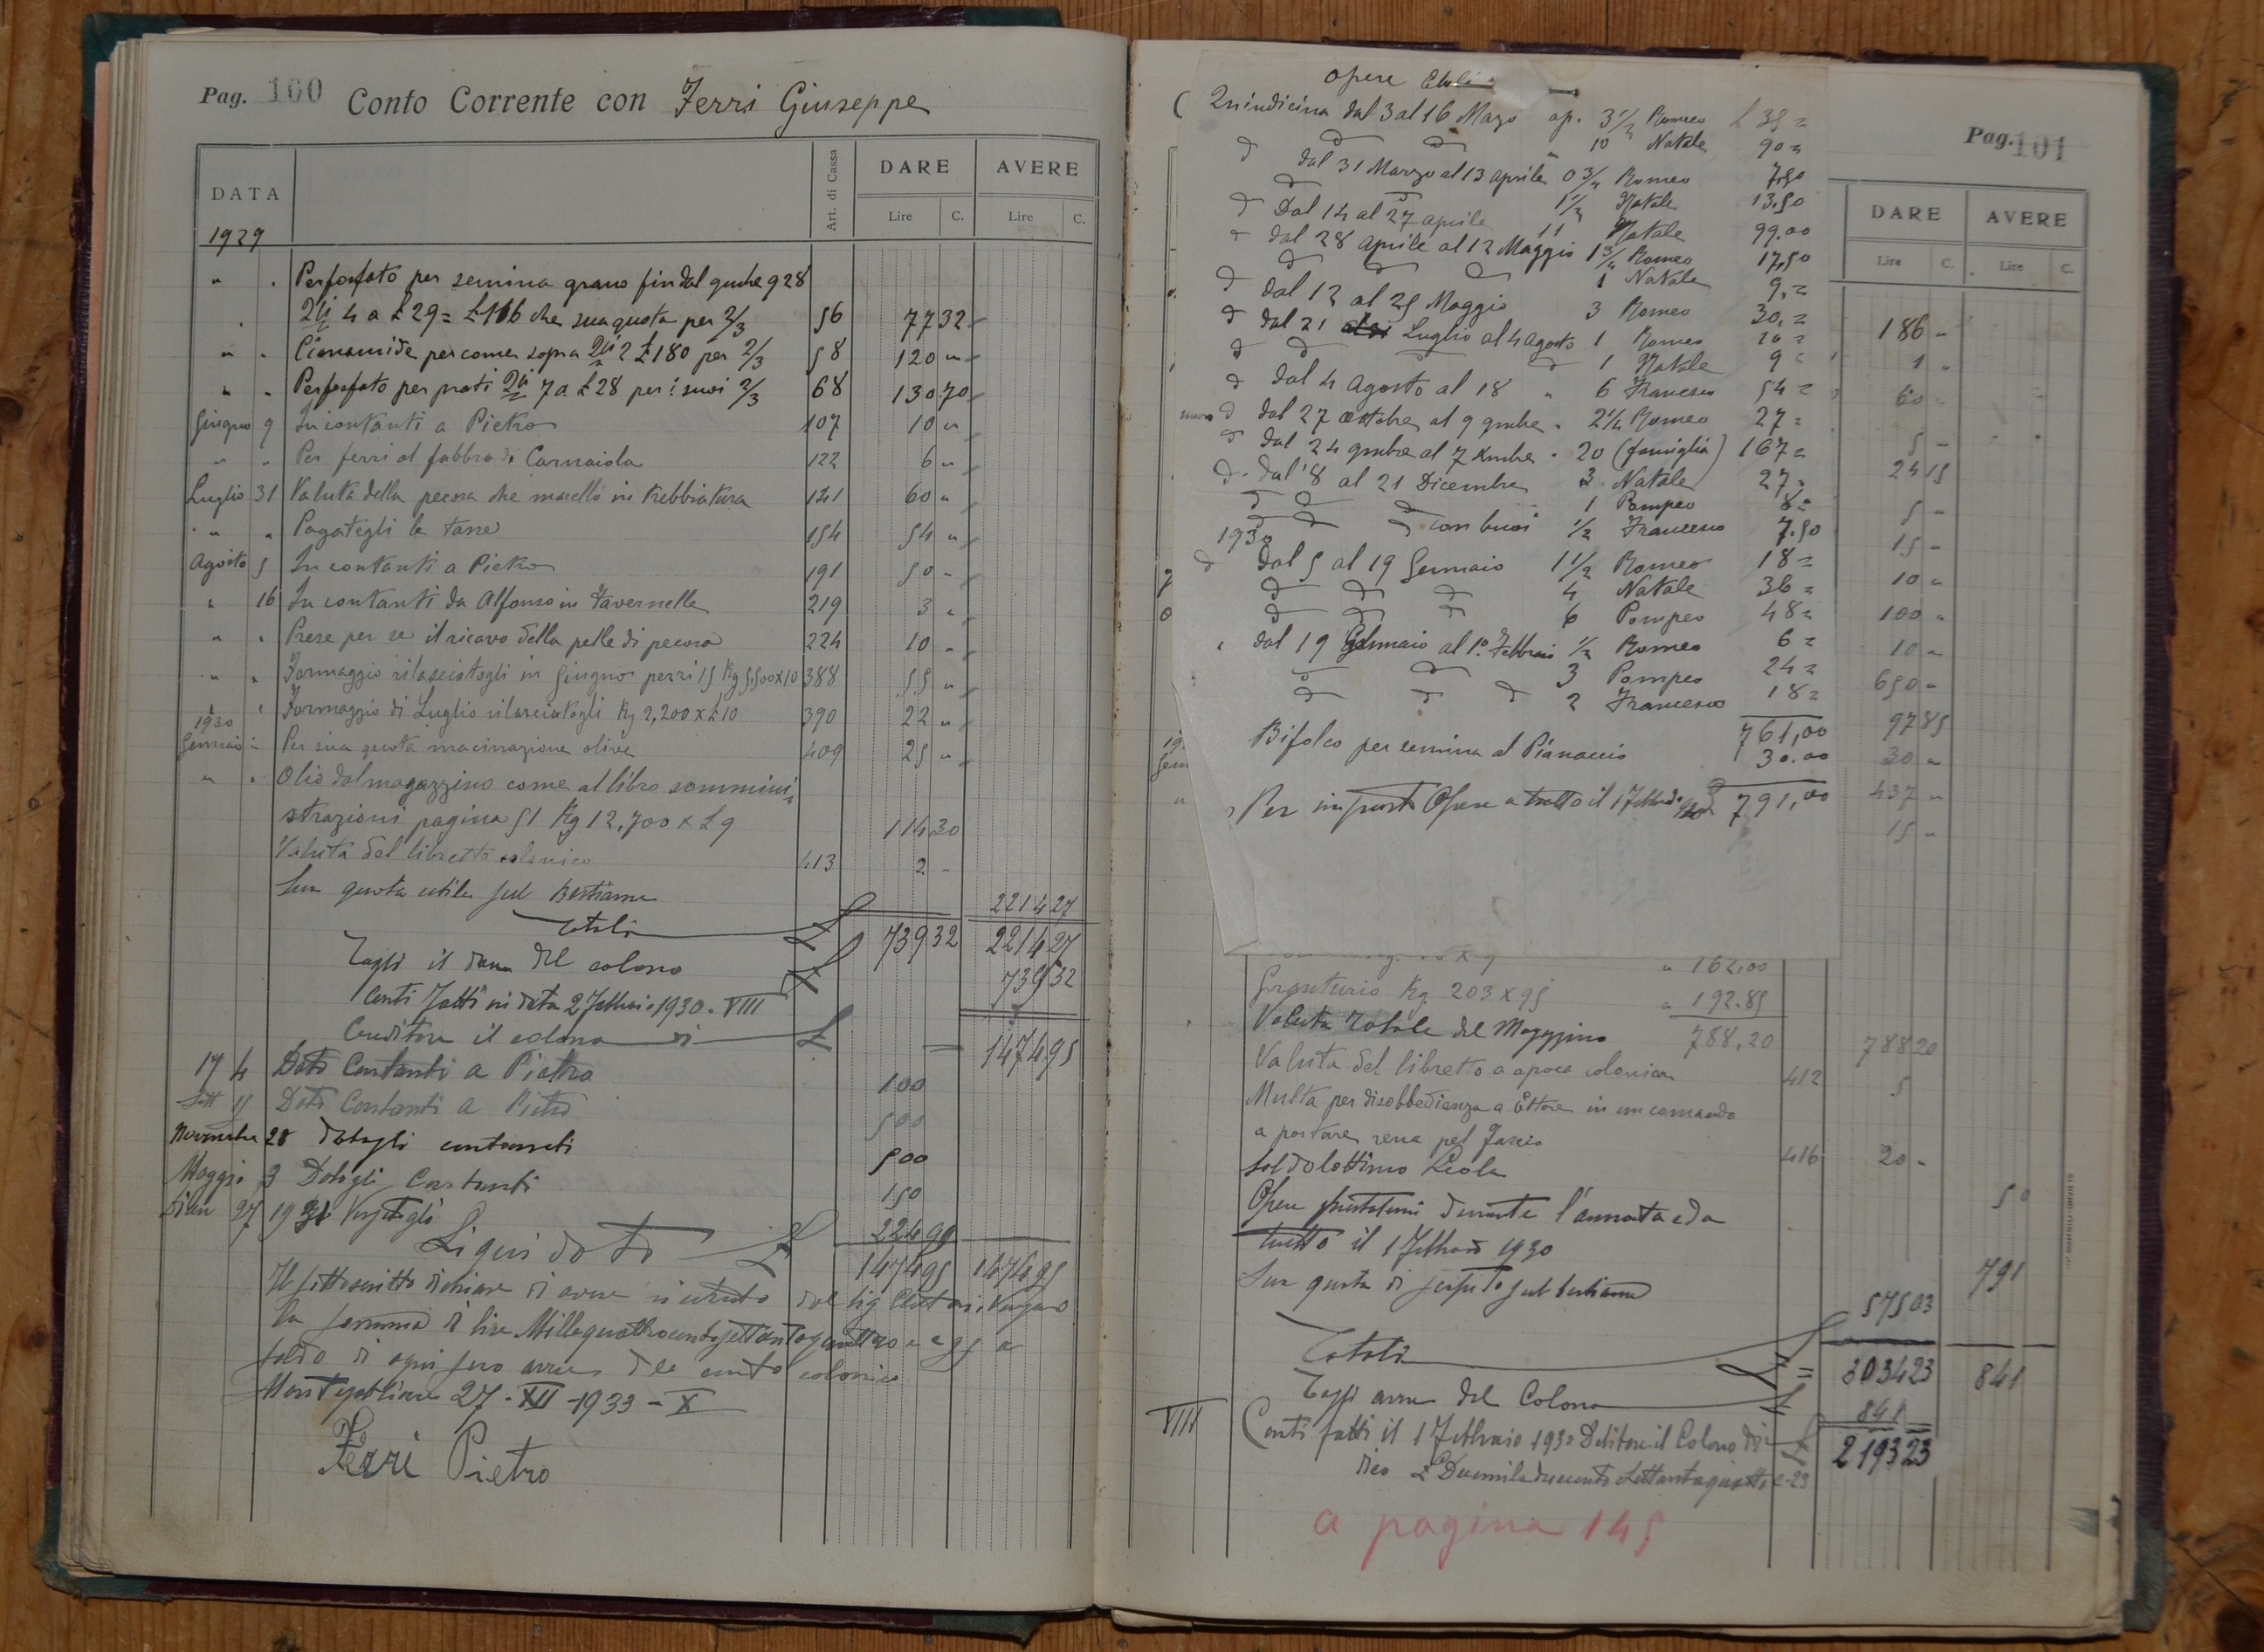 Pag. 100 Conto Corrente con Ferri Giuseppe
DATA Art. di Cassa DARE AVERE
Lire C. Lire C.
1929
" . Perfosfato per semina grano fin dal gmbre 928
. Qli 4 a £ 29 = £ 116 che sua quota per 2/3 56 77 32
" . Cianamide per come sopra Qli 2 £ 180 per 2/3 58 120 "
" . Perfosfato per prati Qli 7 a £ 28 per i suoi 2/3 68 130 70
Giugno 9 In contanti a Pietro 107 10 "
" " Per ferri al fabbro di Carnaiola 122 6 "
Luglio 31 Valuta della pecora che macellò in trebbiatura 141 60 "
" " Pagategli le tasse 154 54 "
Agosto 5 In contanti a Pietro 191 50 -
" 16 In contanti da Alfonso in Tavernelle 219 3 "
" " Prese per se il ricavo della pelle di pecora 224 10 "
" " Formaggio rilasciatogli in Giugno pezzi 15 Kg 5.500 x 10 388 55 "
" " Formaggio di Luglio rilasciatogli Kg 2,200 x £ 10 390 22 "
1930
Gennaio " Per sua quota macinazione olive 409 25 "
" " Olio dal magazzino come al libro sommini=
strazioni pagina 51 Kg 12,700 x £ 9 114 30
Valuta del libretto colonico 413 2 -
Sua quota utile sul Bestiame 2214 27
Totali £ 739 32 2214 27
Togli il dare del colono £ 739 32
Conti fatti in data 2 Febbraio 1930 - VIII
Creditore il colono di £ 1474 95
17 4 Dato Contanti a Pietro 100
Sett 11 Dato Contanti a Pietro 500
Novembre 28 datogli contanti 500
Maggio 3 Datogli Contanti 150
27 19 224 95
Liquidato £ 1474 95 1474 95
Il sottoscritto dichiara di avere ricevuto dal Sig
la somma di lire Millequattrocentosettantaquattro e 95 a
saldo di ogni suo avere del conto colonico
27 - XII - 1933 - X
Ferri Pietro
opere
Quindicina dal 3 al 16 Marzo op. 3 1/2 Romeo £ 35 =
" 10 Natale 90 =
d dal 31 Marzo al 13 aprile 0 3/4 Romeo 7,50
1 1/2 Natale 13,50
d Dal 14 al 27 aprile 11 Natale 99.00
dal 28 aprile al 12 Maggio 1 3/4 Romeo 17,50
1 Natale 9,=
d dal 12 al 25 Maggio 3 Romeo 30,=
d dal 21 Luglio al 4 agosto 1 Romeo 10 =
d 1 Natale 9 =
d dal 4 Agosto al 18 " 6 Francesco 54 =
d dal 27 ottobre al 9 gmbre . 2 1/4 Romeo 27 =
d dal 24 gmbre al 7 Xmbre . 20 (famiglia) 167 =
d. dal 8 al 21 Dicembre 3 Natale 27 =
1 Pompeo 8 =
con buoi 1/2 Francesco 7.50
1930
d dal 5 al 19 Gennaio 1 1/2 Romeo 18 =
4 Natale 36 =
6 Pompeo 48 =
dal 19 Gennaio al 1° Febbraio 1/2 Romeo 6 =
3 Pompeo 24 =
2 Francesco 18 =
761,00
Bifolco per semina al Pianaccio 30.00
Per importo Opere a tutto il 1 Febbraio 1930 791,00
Pag. 101
DARE AVERE
Lire C. Lire C.
186 "
1 "
60 -
5 -
24 15
5 "
15 -
10 "
100 "
10 "
650 "
97 85
30 "
437 "
15 "
" 162,00
Granturco Kg. 203 x 95 " 192.85
Valuta Totale del Magazzino 788,20 788 20
Valuta del libretto a apoca colonica 412 5
Multa per disobbedienza a Ettore in un comando
a portare rena pel Fascio 416 20 -
50
Opere prestatemi durante l'annata e da
tutto il 1 Febbraio 1930 791
Sua quota di scapito sul bestiame 575 03
Totali £ 3034 23 841
Togli avere del Colono £ 841
VIII Conti fatti il 1 Febbraio 1930 Debitore il Colono di £ 2193 23
dico £
a pagina 145